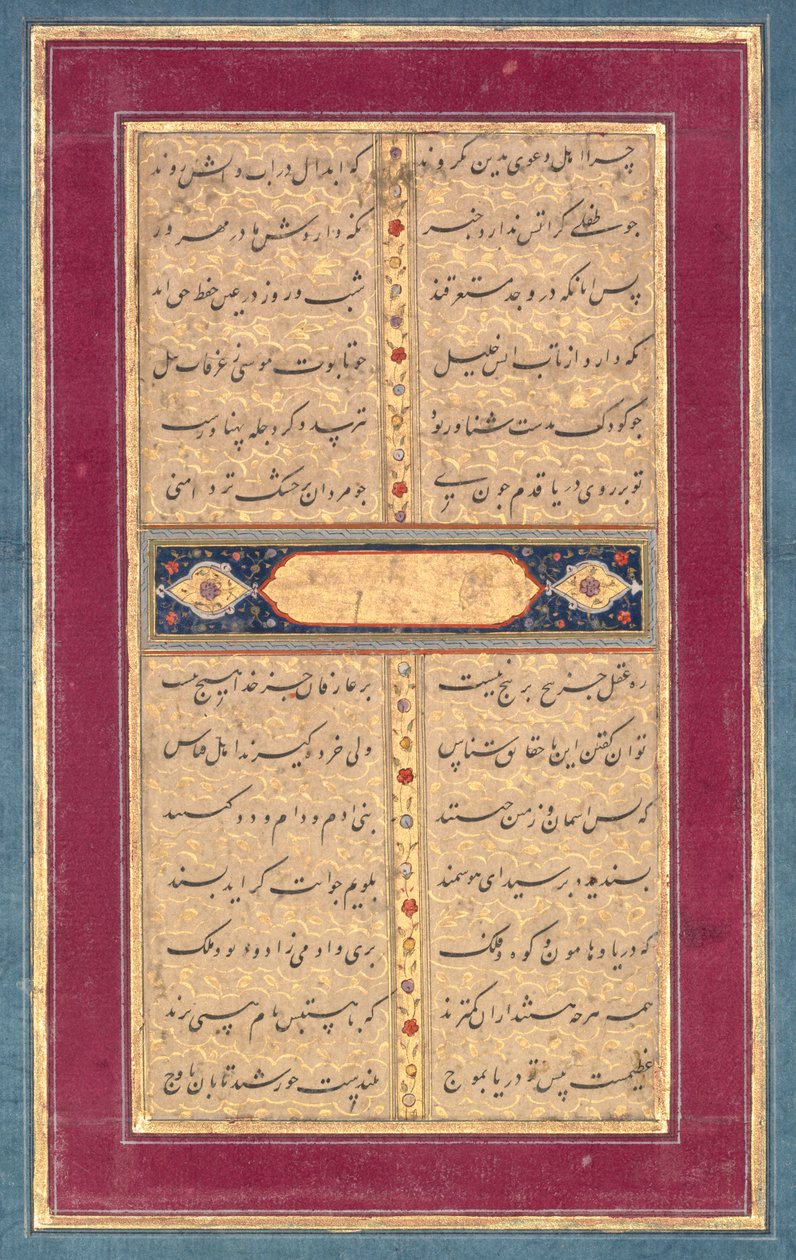 چرا اهل دعوی بدین نکروند که ابدال در اب و اتش روند
جو طفلی کز اتش ندارد خبر نکه داردش مادر مهرور
پس انانکه در وجد مستغرقند شب و روز در عین حفظ حق اند
نکه دارد از تاب اتش خلیل جو تابوت موسی ز غرقاب نیل
جو کودک بدست شناور نترسد وکر دجله پهناورست
تو بر روی دریا قدم جون زنی جو مردان بر خشک تر دامنی
ره عقل جز پیچ بر پیچ نیست بر عارفان جز خدا هیچ نیست
توان کفتن این با حقایق شناس ولی خرده کیرند اهل قیاس
که پس اسمان و زمین چیستند بنی ادم و دام و دد کیستند
پسندیده پرسیدی ای هوشمند بکویم جوابت کر اید پسند
که دریا و هامون و کوه و فلک پری و ادمی زاد و دیو و ملک
همه هرچه هستند ازان کمترند که با هستیش نام هستی برند
عظیمست پیش تو دریا بموج بلندست خورشید تابان باوج